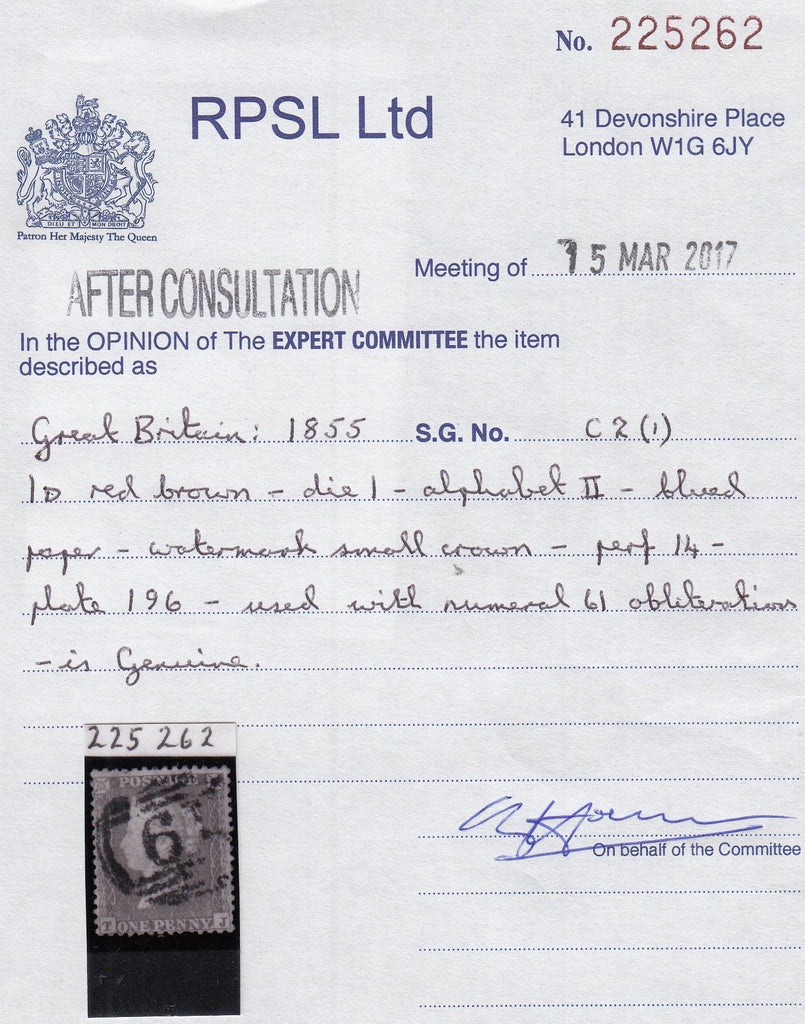 No. 225262
RPSL Ltd
41 Devonshire Place
London W1G 6JY
DIEU ET MON DROIT
Patron Her Majesty The Queen
Meeting of 15 MAR 2017
AFTER CONSULTATION
In the OPINION of The EXPERT COMMITTEE the item
described as
Great Britain: 1855 S.G. No. C2(1)
1D red brown - die 1 - alphabet II - blued
paper - watermark small crown - perf 14 -
plate 196 - used with numeral 61 obliterations
- is Genuine.
225 262
POSTAGE
6
T ONE PENNY J
On behalf of the Committee